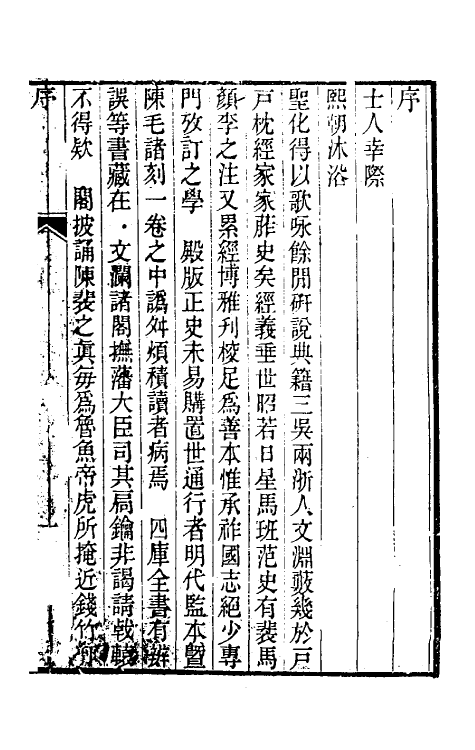 序
士人幸際
熙朝沐浴
聖化得以歌咏餘閒研說典籍三吳兩浙人文淵藪幾於戸
戸枕經家家胙史矣經義垂世昭若日星馬班范史有裴馬
顏李之注又累經博雅刋校足為善本惟承祚國志絕少專
門攷訂之學 殿版正史未易購置世通行者明代監本曁
陳毛諸刻一卷之中譌舛煩積讀者病焉 四庫全書有辨
誤等書藏在·文瀾諸閣撫藩大臣司其扃鑰非謁請戟轅
不得欵 閣披誦陳裴之眞每為魯魚帝虎所掩近錢竹
序